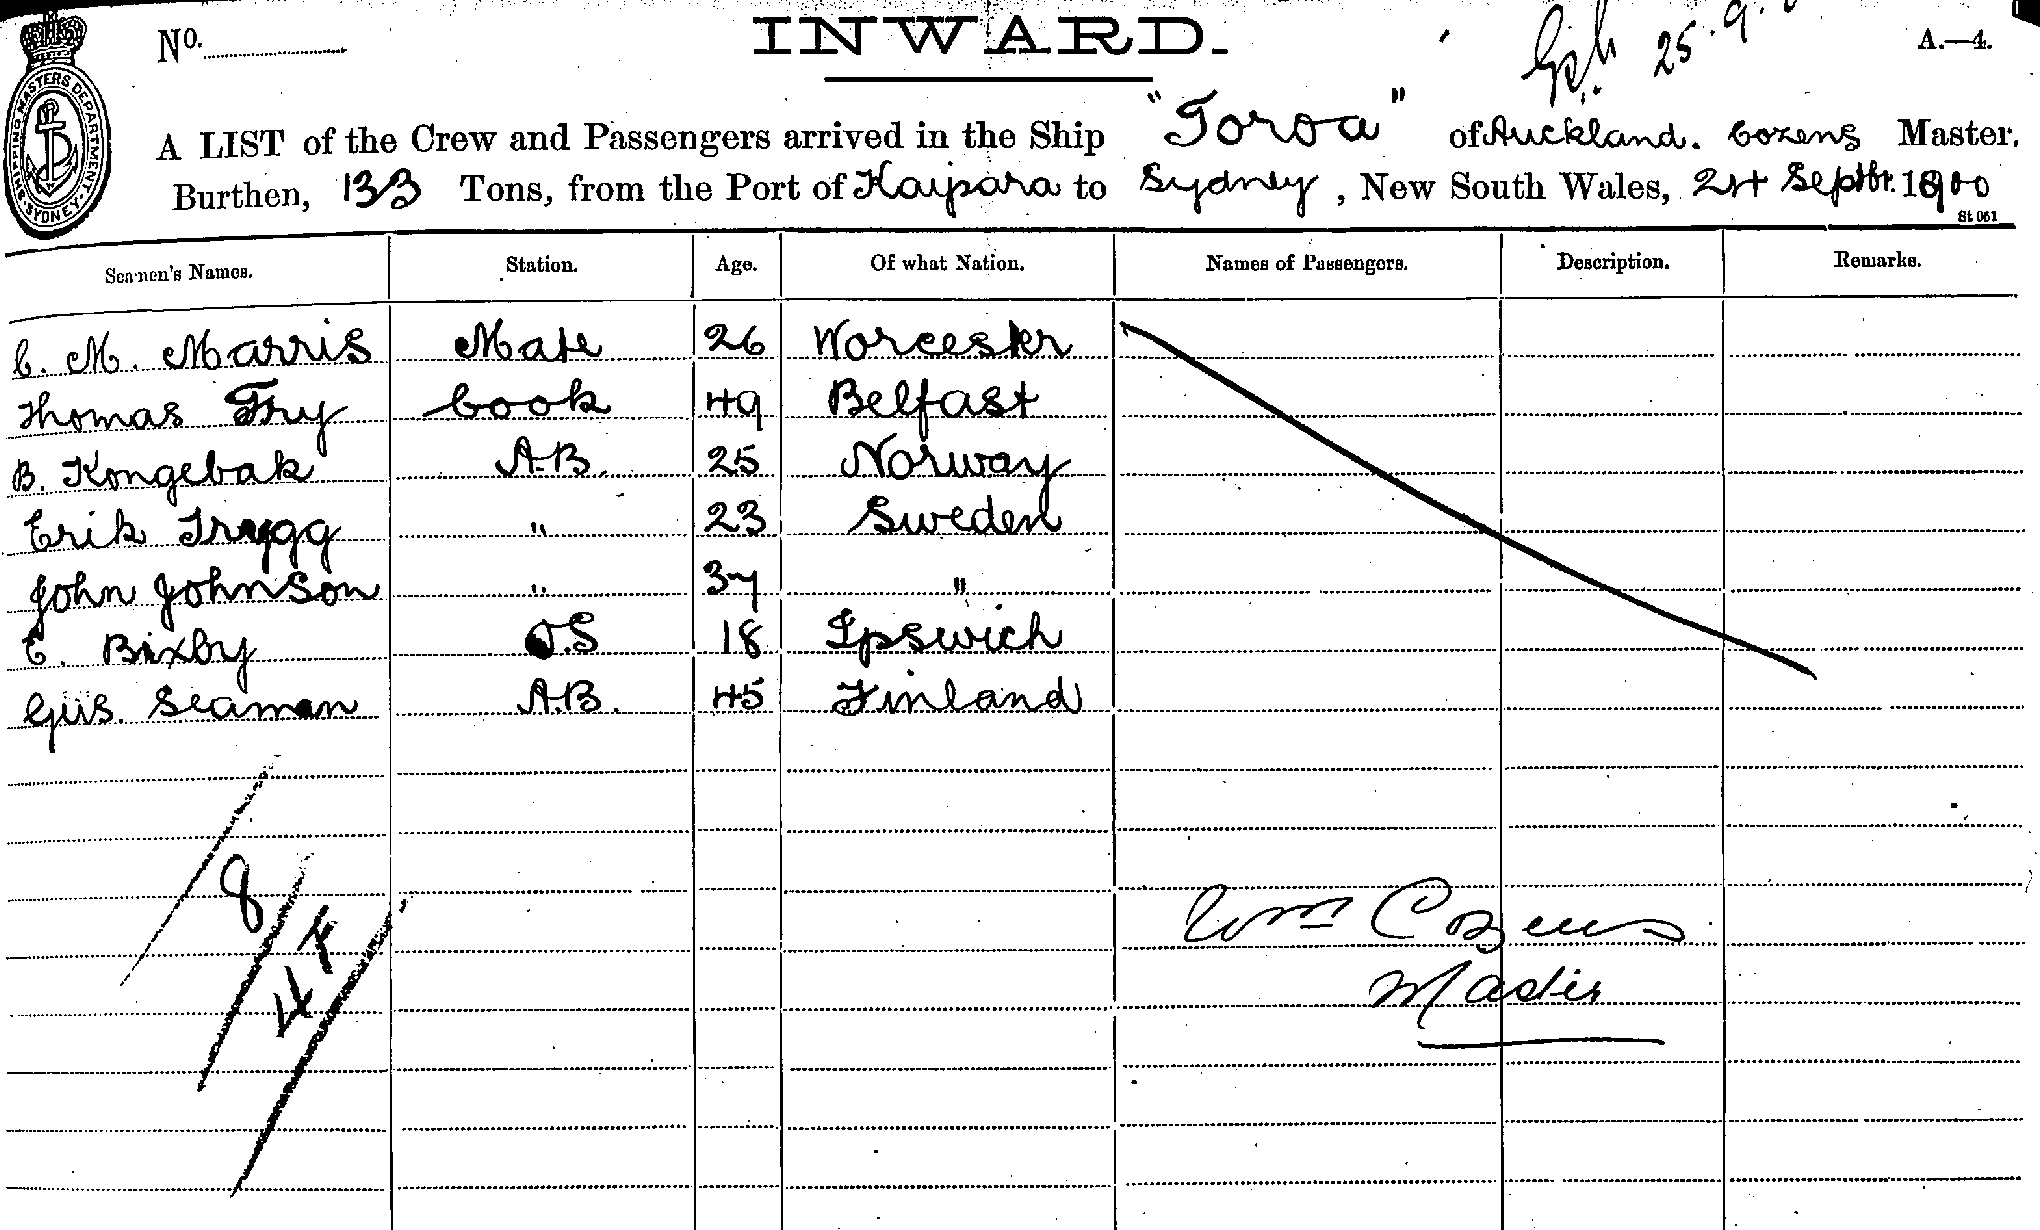 No. INWARD. 25.9. A.—4.
SHIPPING MASTERS DEPARTMENT SYDNEY
A LIST of the Crew and Passengers arrived in the Ship "Toroa" of Auckland. Cozens Master,
Burthen, 133 Tons, from the Port of Kaipara to Sydney, New South Wales, 24 Septbr. 1900
St 061
Seamen's Names. Station. Age. Of what Nation. Names of Passengers. Description. Remarks.
C. M. Marris Mate 26 Worcester
Thomas Fry Cook 49 Belfast
B. Kongebak A.B. 25 Norway
Erik Trygg " 23 Sweden
John Johnson " 37 "
E. Bixby O.S 18 Ipswich
Gus. Seaman A.B. 45 Finland
8
Wm Cozens
Master